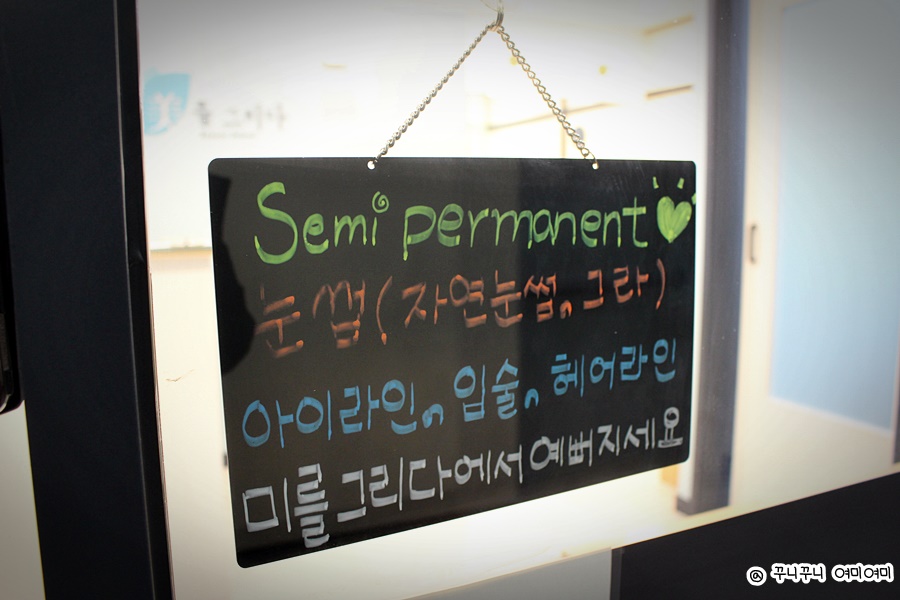 Semi permanent
눈썹(자연눈썹, 그라)
아이라인, 입술, 헤어라인
미를그리다에서 예뻐지세요
@ 꾸니꾸니 여미여미